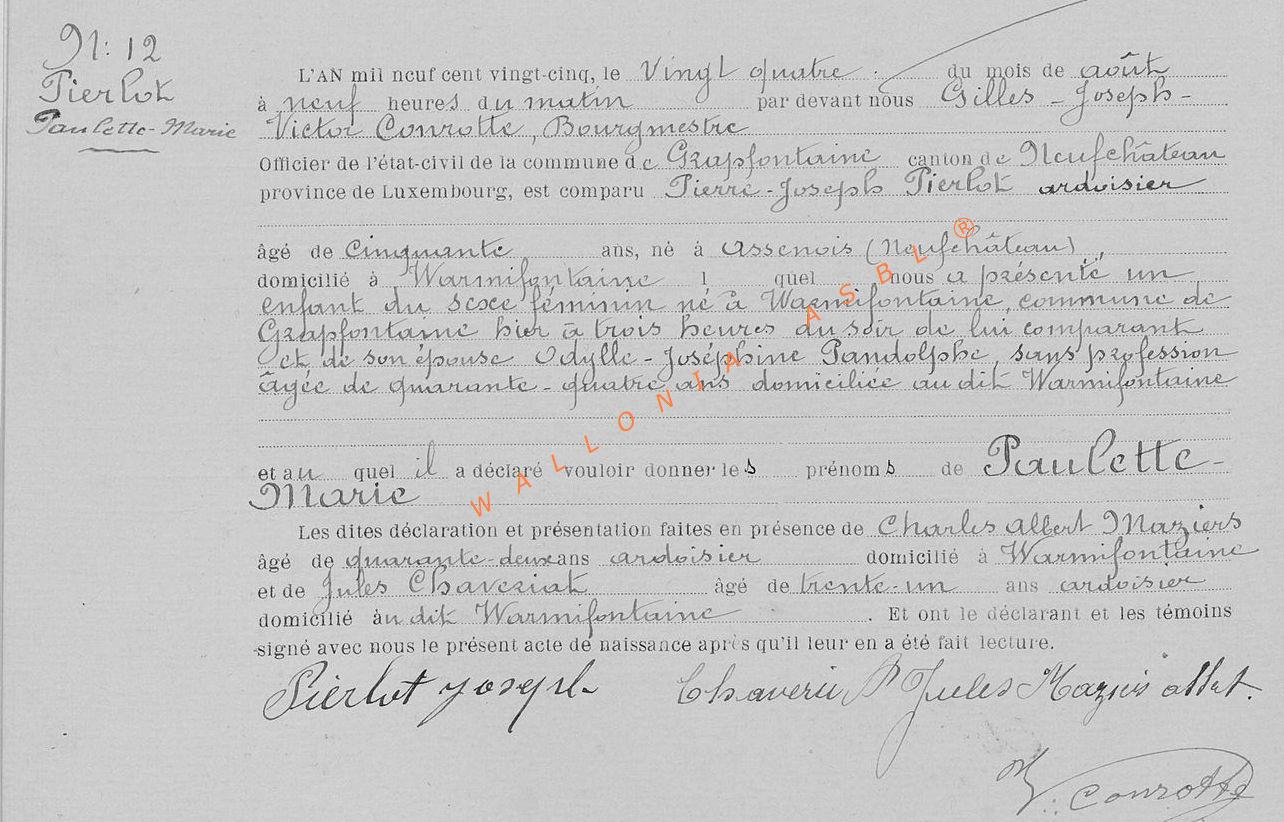 N: 12
Pierlot
Paulette-Marie
L'AN mil neuf cent vingt-cinq, le Vingt quatre du mois de août
à neuf heures du matin par devant nous Gilles - Joseph -
Victor Conrotte, Bourgmestre
Officier de l'état-civil de la commune de Grapfontaine canton de Neufchâteau
province de Luxembourg, est comparu Pierre-Joseph Pierlot ardoisier
âgé de cinquante ans, né à Assenois (Neufchâteau),
domicilié à Warmifontaine l quel nous a présenté un
enfant du sexe féminin né à Warmifontaine, commune de
Grapfontaine hier à trois heures du soir de lui comparant
et de son épouse Odylle-Joséphine Pandolphe, sans profession
âgée de quarante-quatre ans domiciliée au dit Warmifontaine
et au quel il a déclaré vouloir donner les prénoms de Paulette-
Marie
Les dites déclaration et présentation faites en présence de Charles Albert Maziers
âgé de quarante-deux ans ardoisier domicilié à Warmifontaine
et de Jules Chaveriat âgé de trente-un ans ardoisier
domicilié àu dit Warmifontaine . Et ont le déclarant et les témoins
signé avec nous le présent acte de naissance après qu'il leur en a été fait lecture.
Pierlot Joseph Jules Maziers
V. Conrotte
WALLONIA ASBL ®